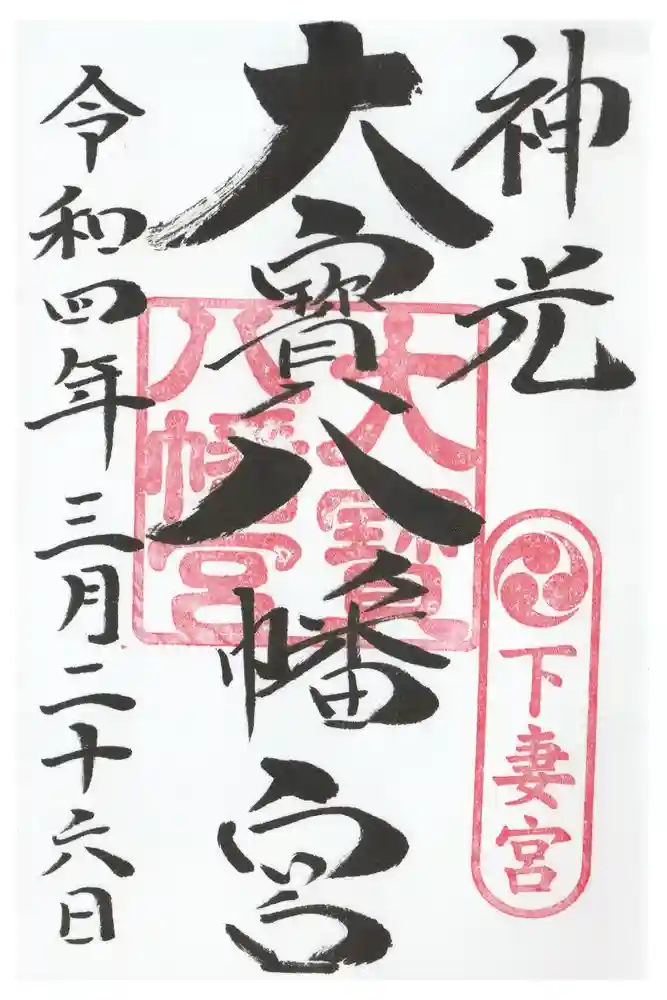 神光
下妻宮
大寳八幡宮
大寳八幡宮
令和四年三月二十六日